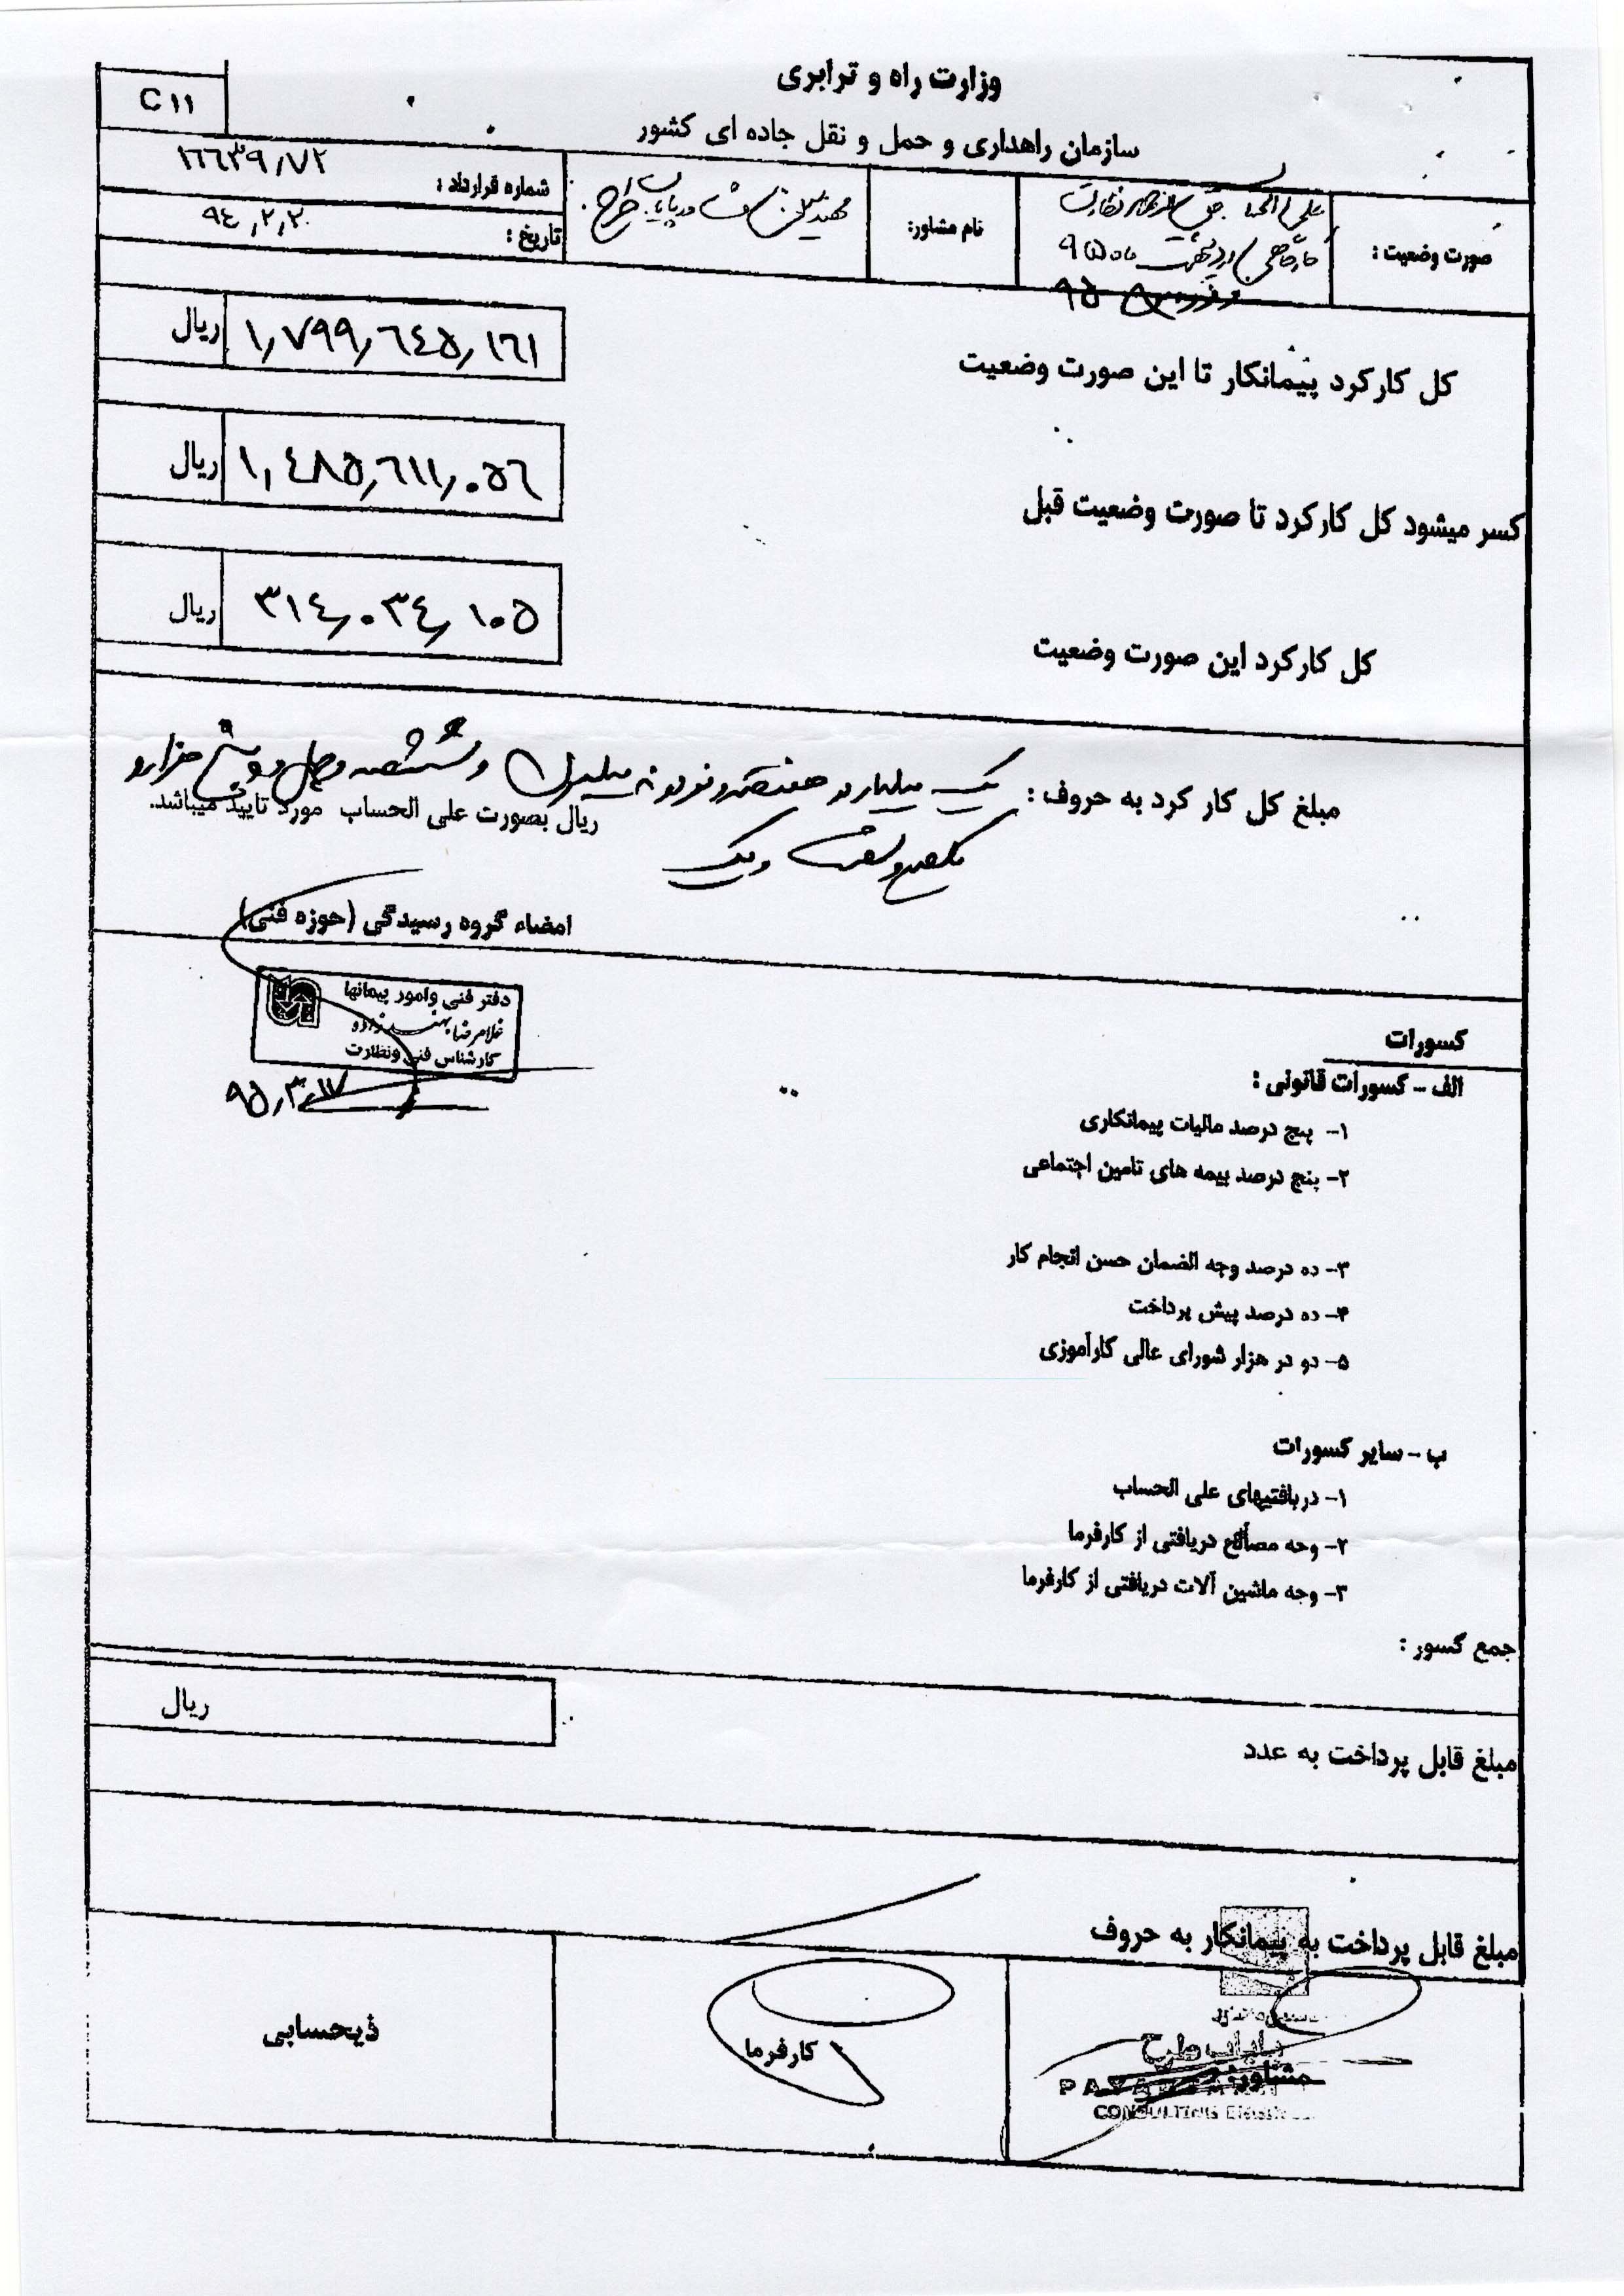 وزارت راه و ترابری
سازمان راهداری و حمل و نقل جاده ای کشور
C ۱۱
صورت وضعیت :
علی الحساب حق الزحمه نظارت
کارگاهی اردیبهشت ماه ۹۵
و فروردین ۹۵
نام مشاور:
مهندسین مشاور پایاب طرح
شماره قرارداد :
۱۶۶۳۹/۷۲
تاریخ :
۹٤/۲/۲۰
کل کارکرد پیمانکار تا این صورت وضعیت
۱/۷۹۹/٦٤٥/۱٦۱ ریال
کسر میشود کل کارکرد تا صورت وضعیت قبل
۱/٤۸٥/٦۱۱/۰٥٦ ریال
کل کارکرد این صورت وضعیت
۳۱٤/۰۳٤/۱۰٥ ریال
مبلغ کل کار کرد به حروف : یک میلیارد و هفتصد و نود و نه میلیون و ششصد و چهل و پنج هزار و
یکصد و شصت و یک ریال بصورت علی الحساب مورد تایید میباشد.
امضاء گروه رسیدگی (حوزه فنی)
دفتر فنی وامور پیمانها
غلامرضا
کارشناس فنی ونظارت
۹٥/۳/۱۷
کسورات
الف - کسورات قانونی :
۱- پنج درصد مالیات پیمانکاری
۲- پنج درصد بیمه های تامین اجتماعی
۳- ده درصد وجه الضمان حسن انجام کار
۴- ده درصد پیش پرداخت
۵- دو در هزار شورای عالی کارآموزی
ب - سایر کسورات
۱- دریافتیهای علی الحساب
۲- وجه مصالح دریافتی از کارفرما
۳- وجه ماشین آلات دریافتی از کارفرما
جمع کسور :
مبلغ قابل پرداخت به عدد
ریال
مبلغ قابل پرداخت به پیمانکار به حروف
پایاب طرح
مشاور:
CONSULTING
کارفرما
ذیحسابی